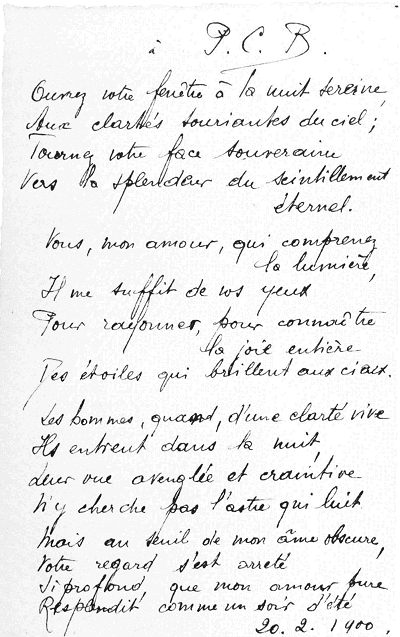 à P. C. B.
Ouvrez votre fenêtre à la nuit sereine
Aux clartés souriantes du ciel ;
Tournez votre face souveraine
Vers la splendeur du scintillement
éternel.
Vous, mon amour, qui comprenez
la lumière,
Il me suffit de vos yeux
Pour rayonner, pour connaître
la joie entière
Des étoiles qui brillent aux cieux.
Les hommes, quand, d'une clarté vive
Ils entrent dans la nuit,
Leur vue aveuglée et craintive
N'y cherche pas l'astre qui luit
Mais au seuil de mon âme obscure,
Votre regard s'est arrêté
Si profond, que mon amour pure
Resplendit comme un soir d'été
20. 2. 1900.